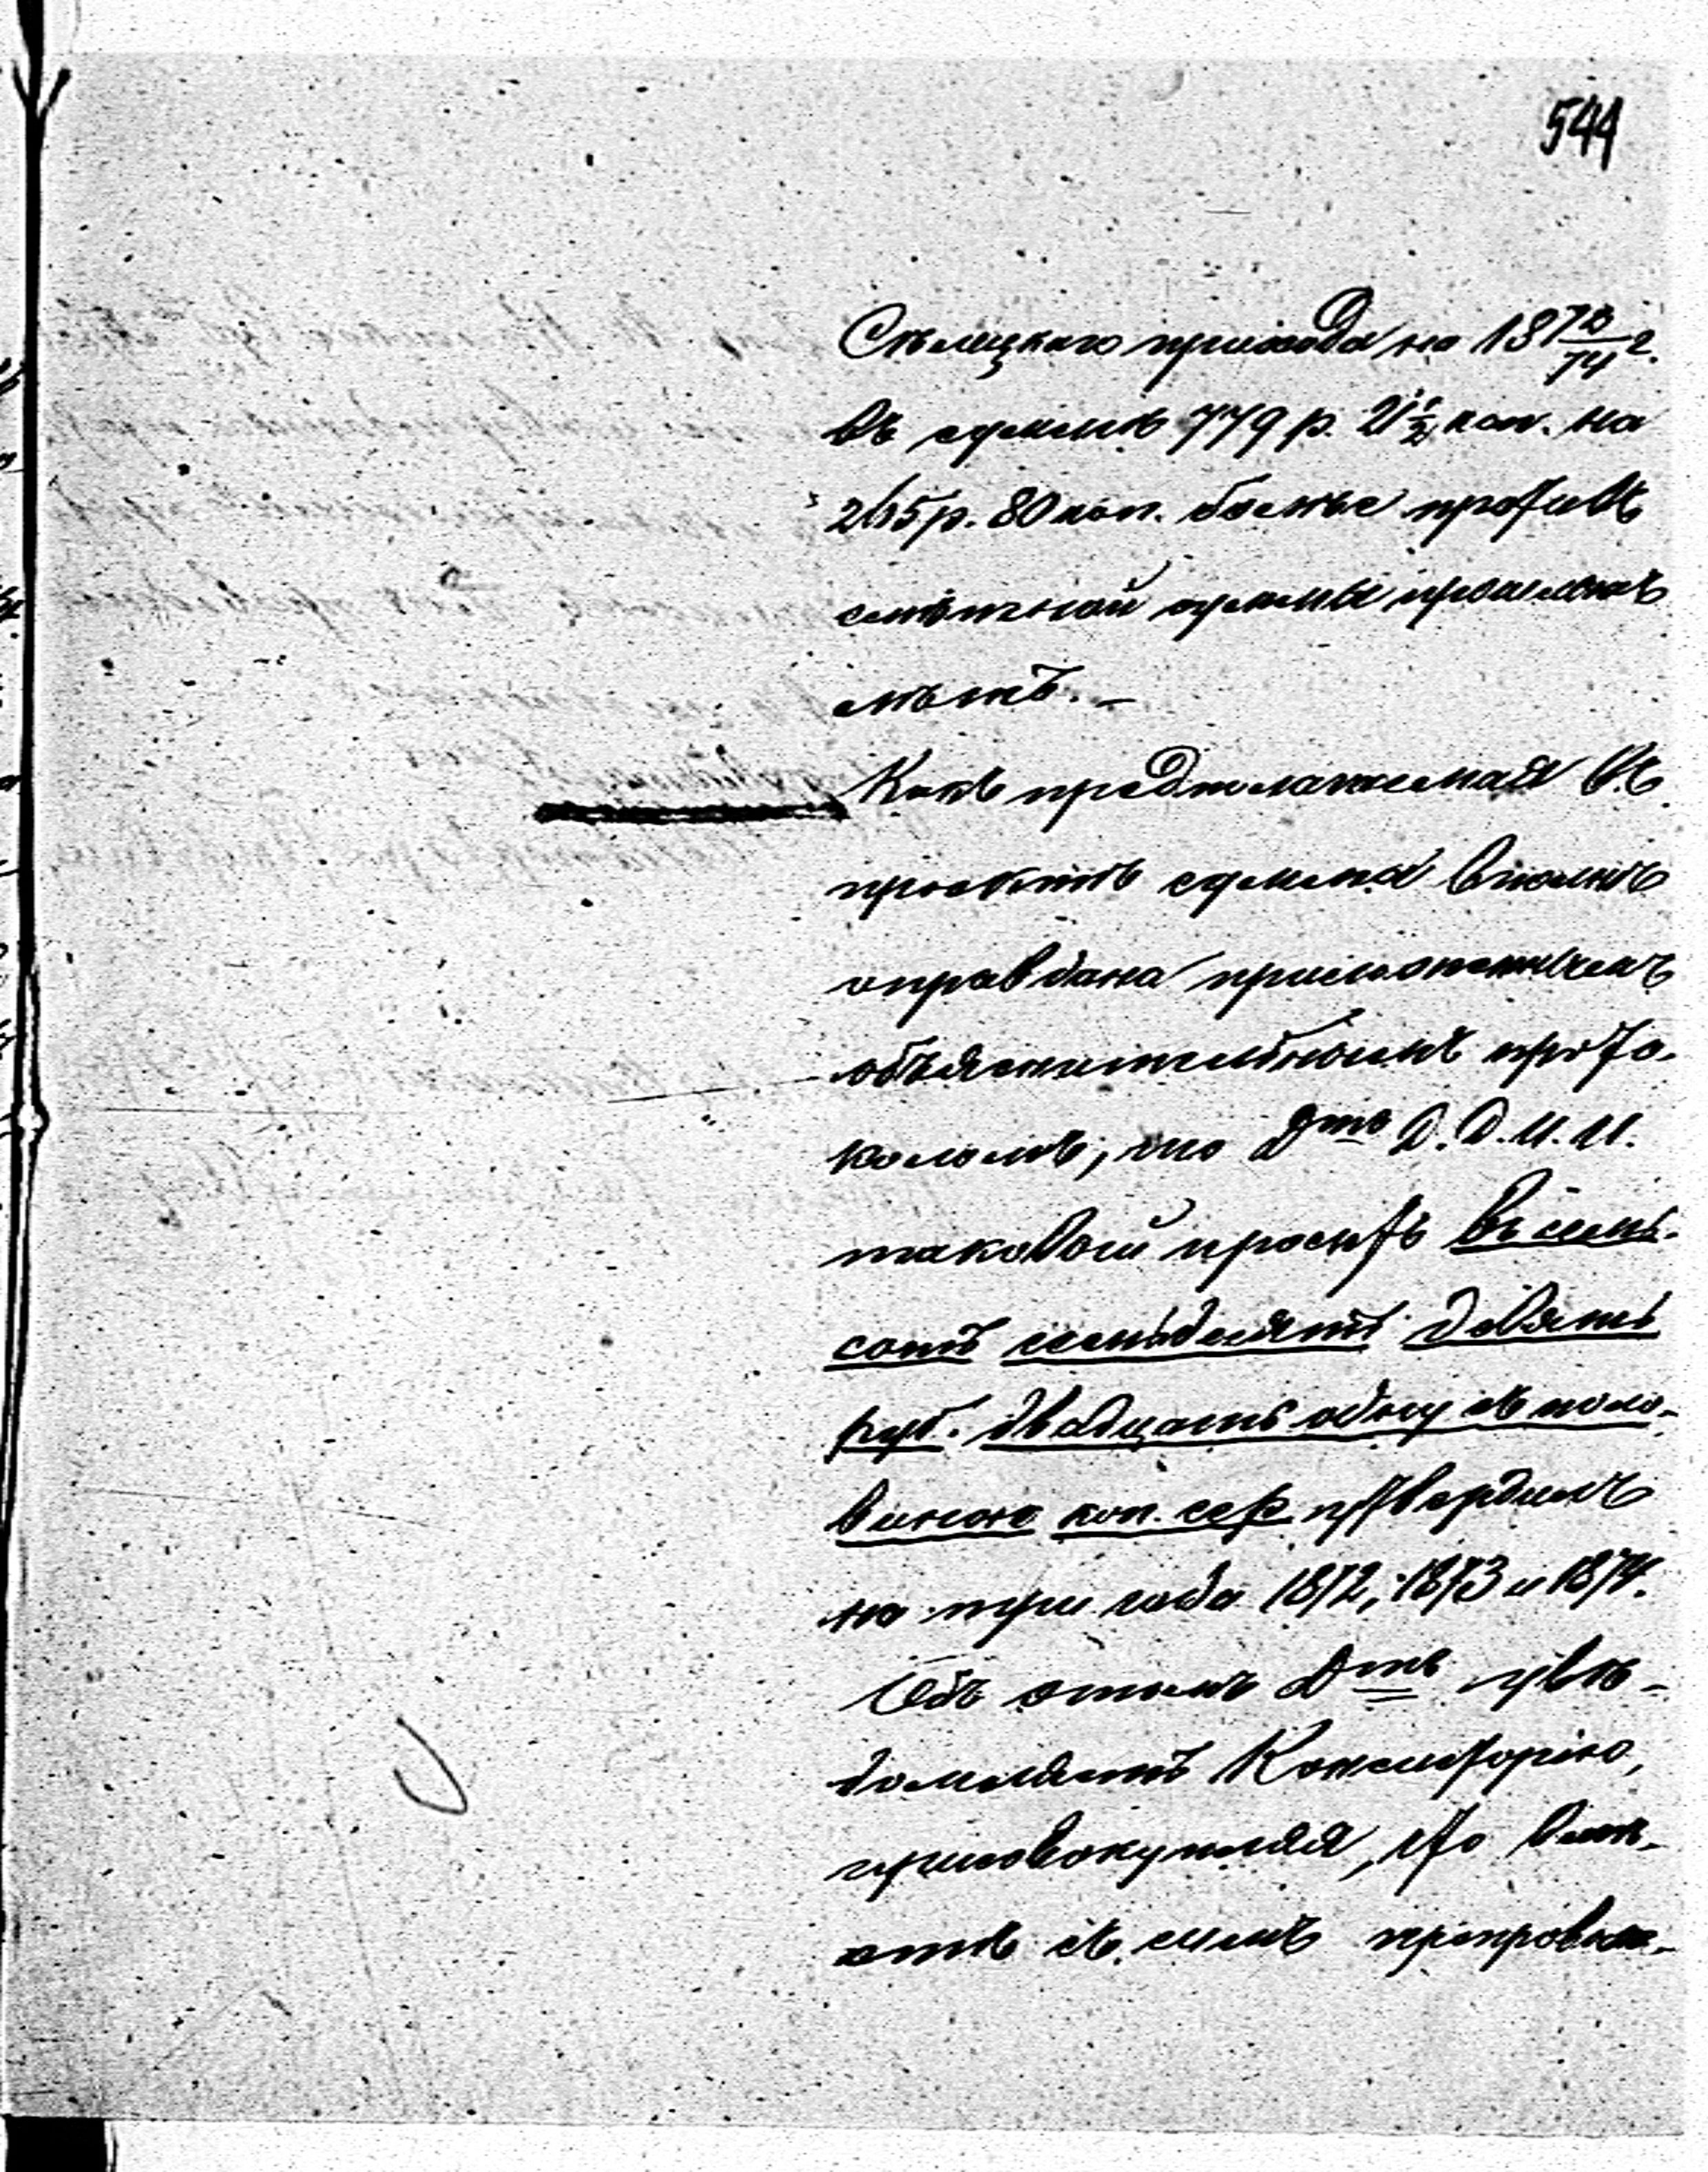 544
Сѣлецкаго прихода на 1872/74 г.
въ суммѣ 779 р. 21½ коп. на
265 р. 80 коп. болѣе противъ
смѣтной суммы прошлыхъ
лѣтъ. —
Какъ предполагаемая въ
проектѣ сумма вполнѣ
оправдана приложеннымъ
объяснительнымъ прото-
коломъ, то Дтъ Д. Д. И. И.
таковой проектъ въ семь-
сотъ семьдесятъ девять
руб. двадцать одну съ поло-
виною коп. сер. утвердилъ
на три года 1872, 1873 и 1874.
Объ этомъ Дтъ увѣ-
домляетъ Консисторію,
присовокупляя, что вмѣ-
стѣ съ симъ препровож-